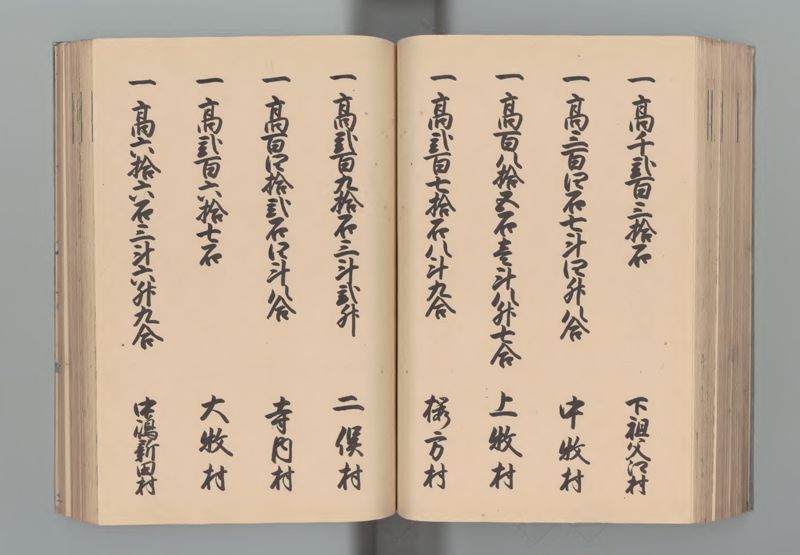 一 高千弐百三拾石 下祖父江村
一 高三百四石七斗四升八合 中牧村
一 高百八拾五石壱斗八升七合 上牧村
一 高弐百七拾石八斗九合 方村
一 高弐百九拾石三斗弐升 二俣村
一 高百四拾弐石四斗八合 寺内村
一 高弐百六拾七石 大牧村
一 高六拾六石三斗六升九合 中嶋新田村